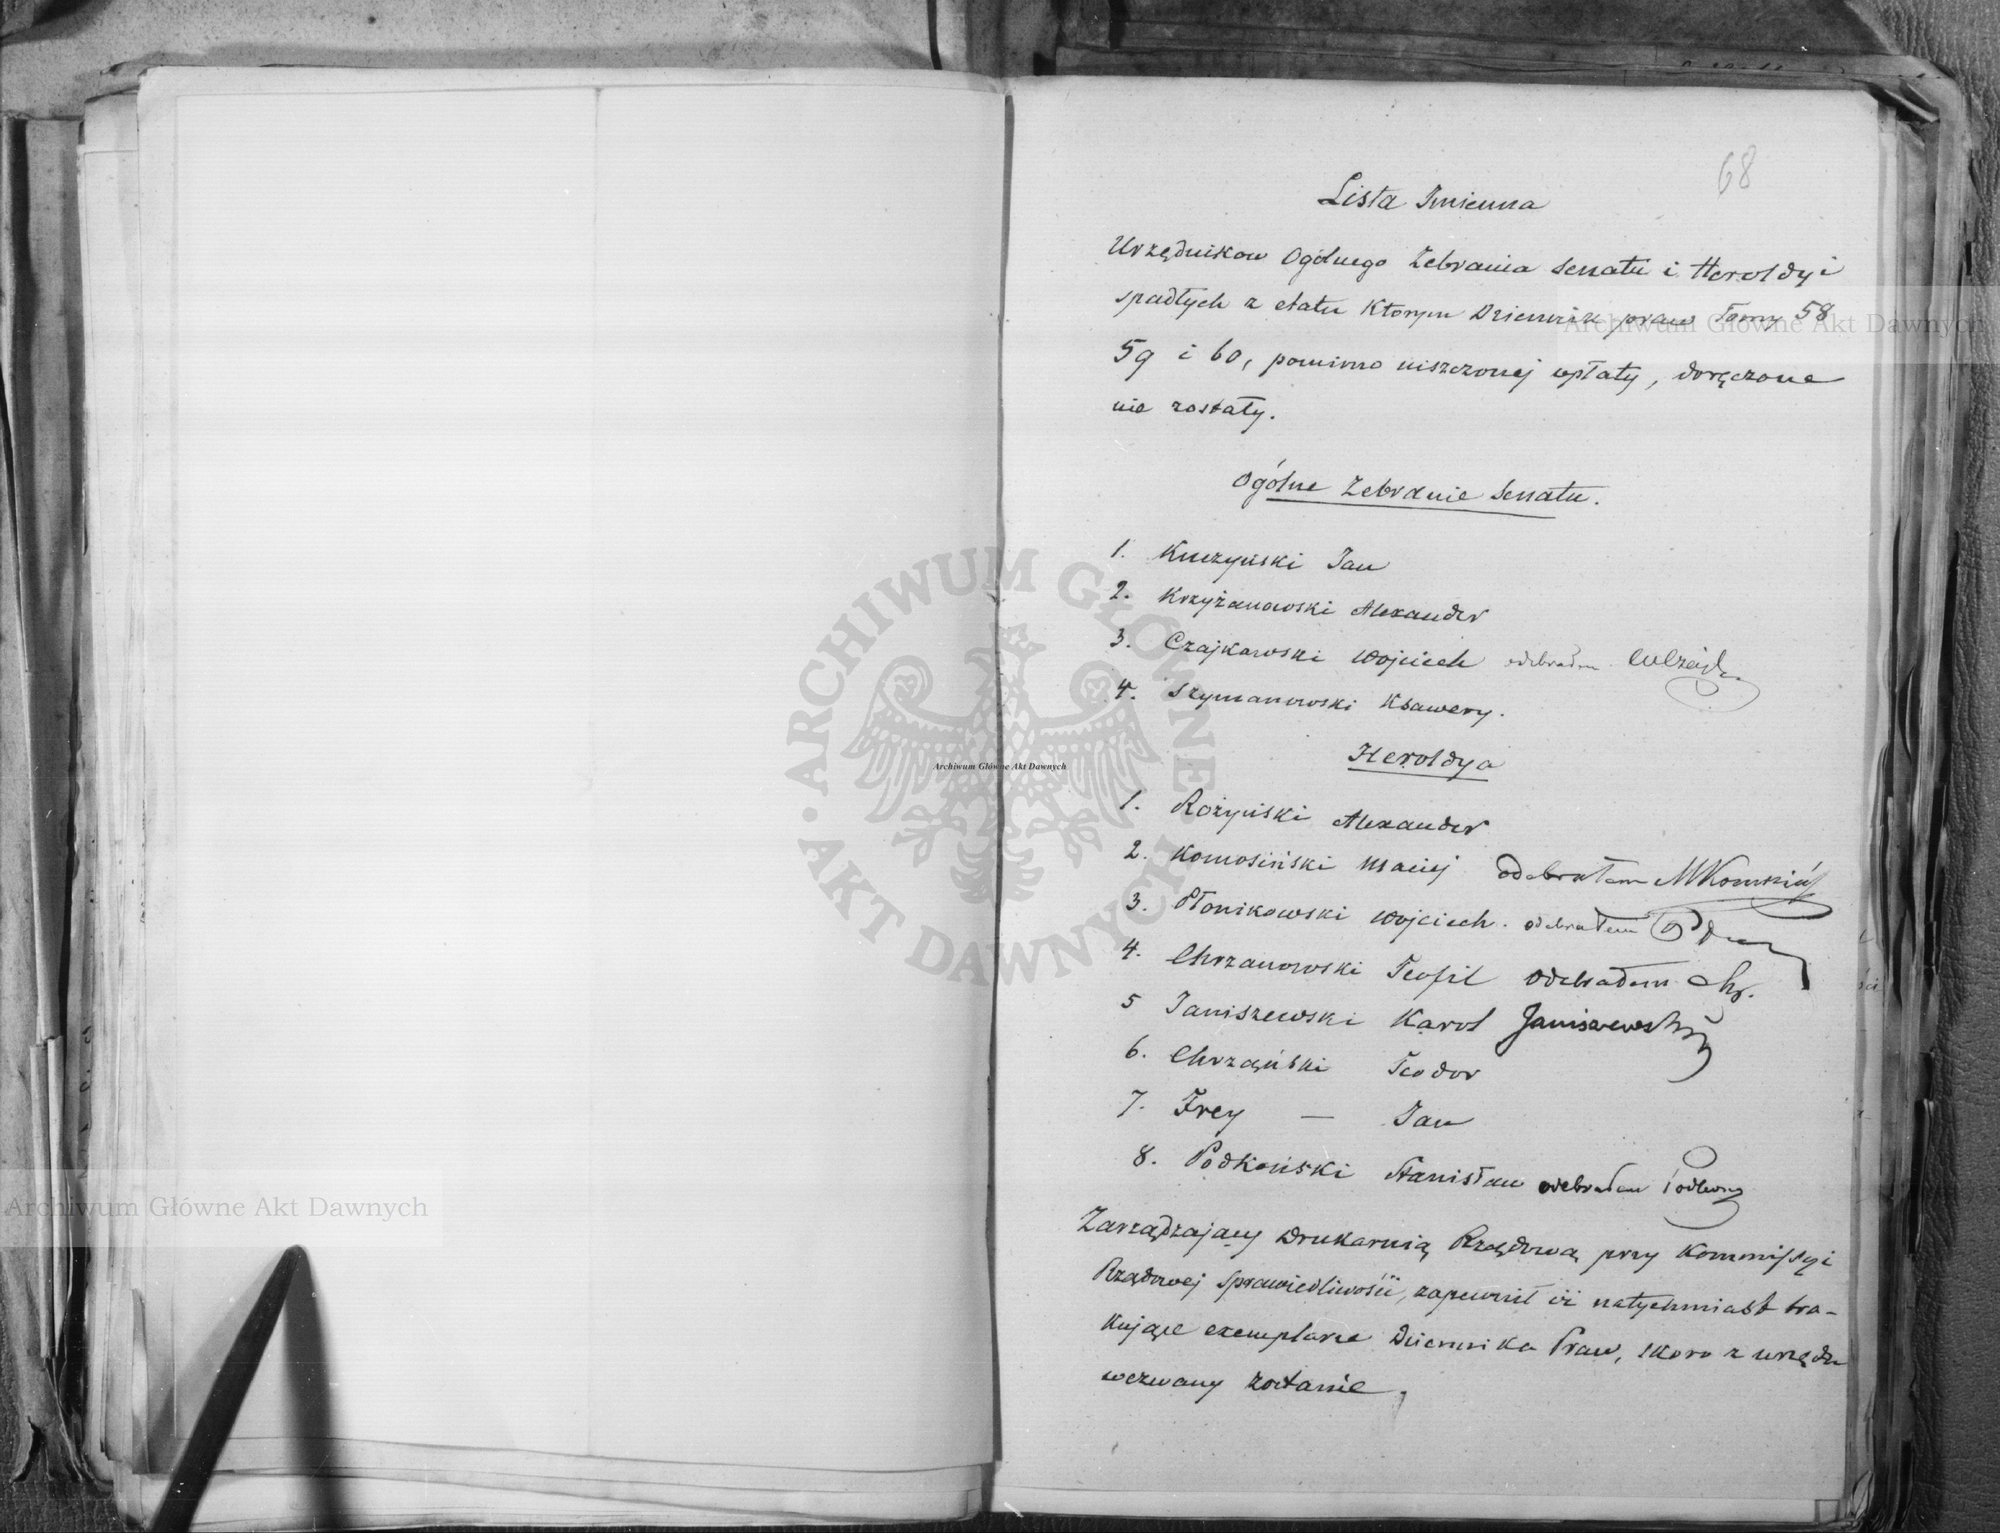 68
Lista Imienna
Urzędnikow Ogólnego Zebrania Senatu i Heroldyi
spadłych z etatu Którym Dziennik praw Tomy 58
59 i 60, pomimo uiszczonej wpłaty, doręczone
nie zostały.
Ogólne Zebranie Senatu.
1. Kuczyński Jan
2. Krzyżanowski Alexander
3. Czajkowski Wojciech odebrałem
4. Szymanowski Ksawery.
Heroldya
1. Rożyński Alexander
2. Komosiński Maciej odebrałem MKomosiński
3. Płonikowski Wojciech. odebrałem
4. Chrzanowski Teofil odebrałem Chr.
5 Janiszewski Karol Janiszewski
6. Chrząński Teodor
7. Frey — Jan
8. Podkoński Stanisław odebrałem
Zarządzający Drukarnią Rządową przy Kommissyi
Rządowej Sprawiedliwości, zapewnił iż natychmiast bra-
kujące exemplarze Dziennika Praw, skoro z urzędu
wezwany zostanie.
ARCHIWUM GŁÓWNE AKT DAWNYCH
Archiwum Główne Akt Dawnych
Archiwum Główne Akt Dawnych
Archiwum Główne Akt Dawnych